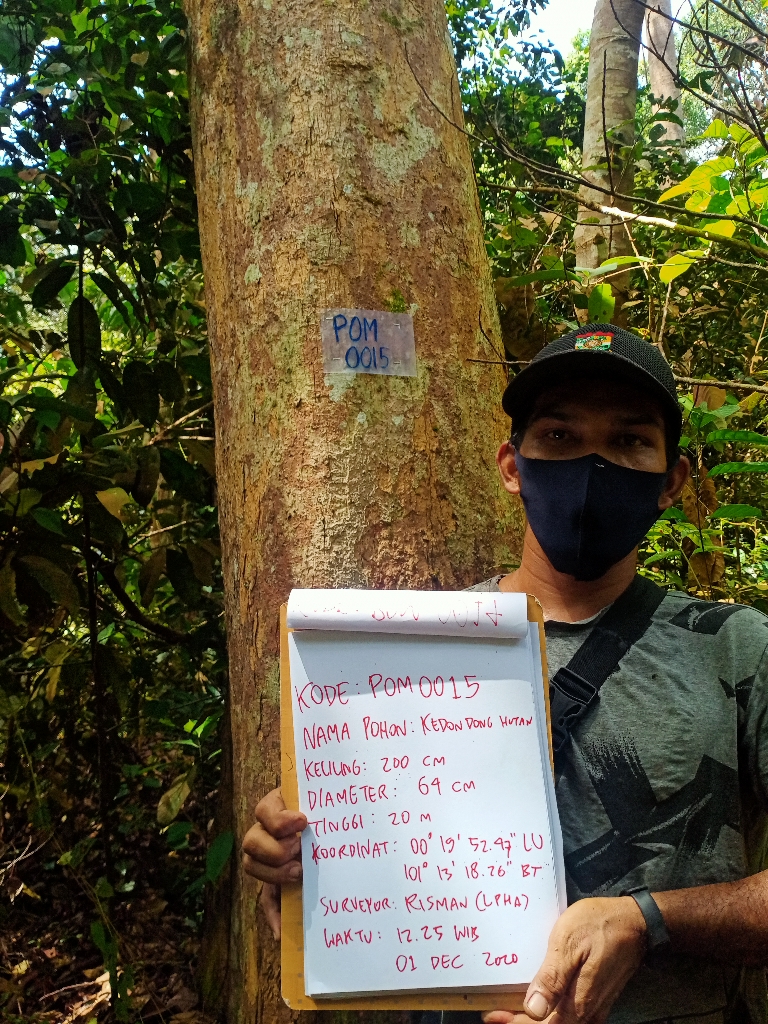 POM
0015
KODE: POM 0015
NAMA POHON: KEDONDONG HUTAN
KELILING: 200 CM
DIAMETER: 64 CM
TINGGI: 20 M
KOORDINAT: 00° 19' 52.47" LU
101° 13' 18.26" BT
SURVEYOR: RISMAN (LPHA)
WAKTU: 12.25 WIB
01 DEC 2020